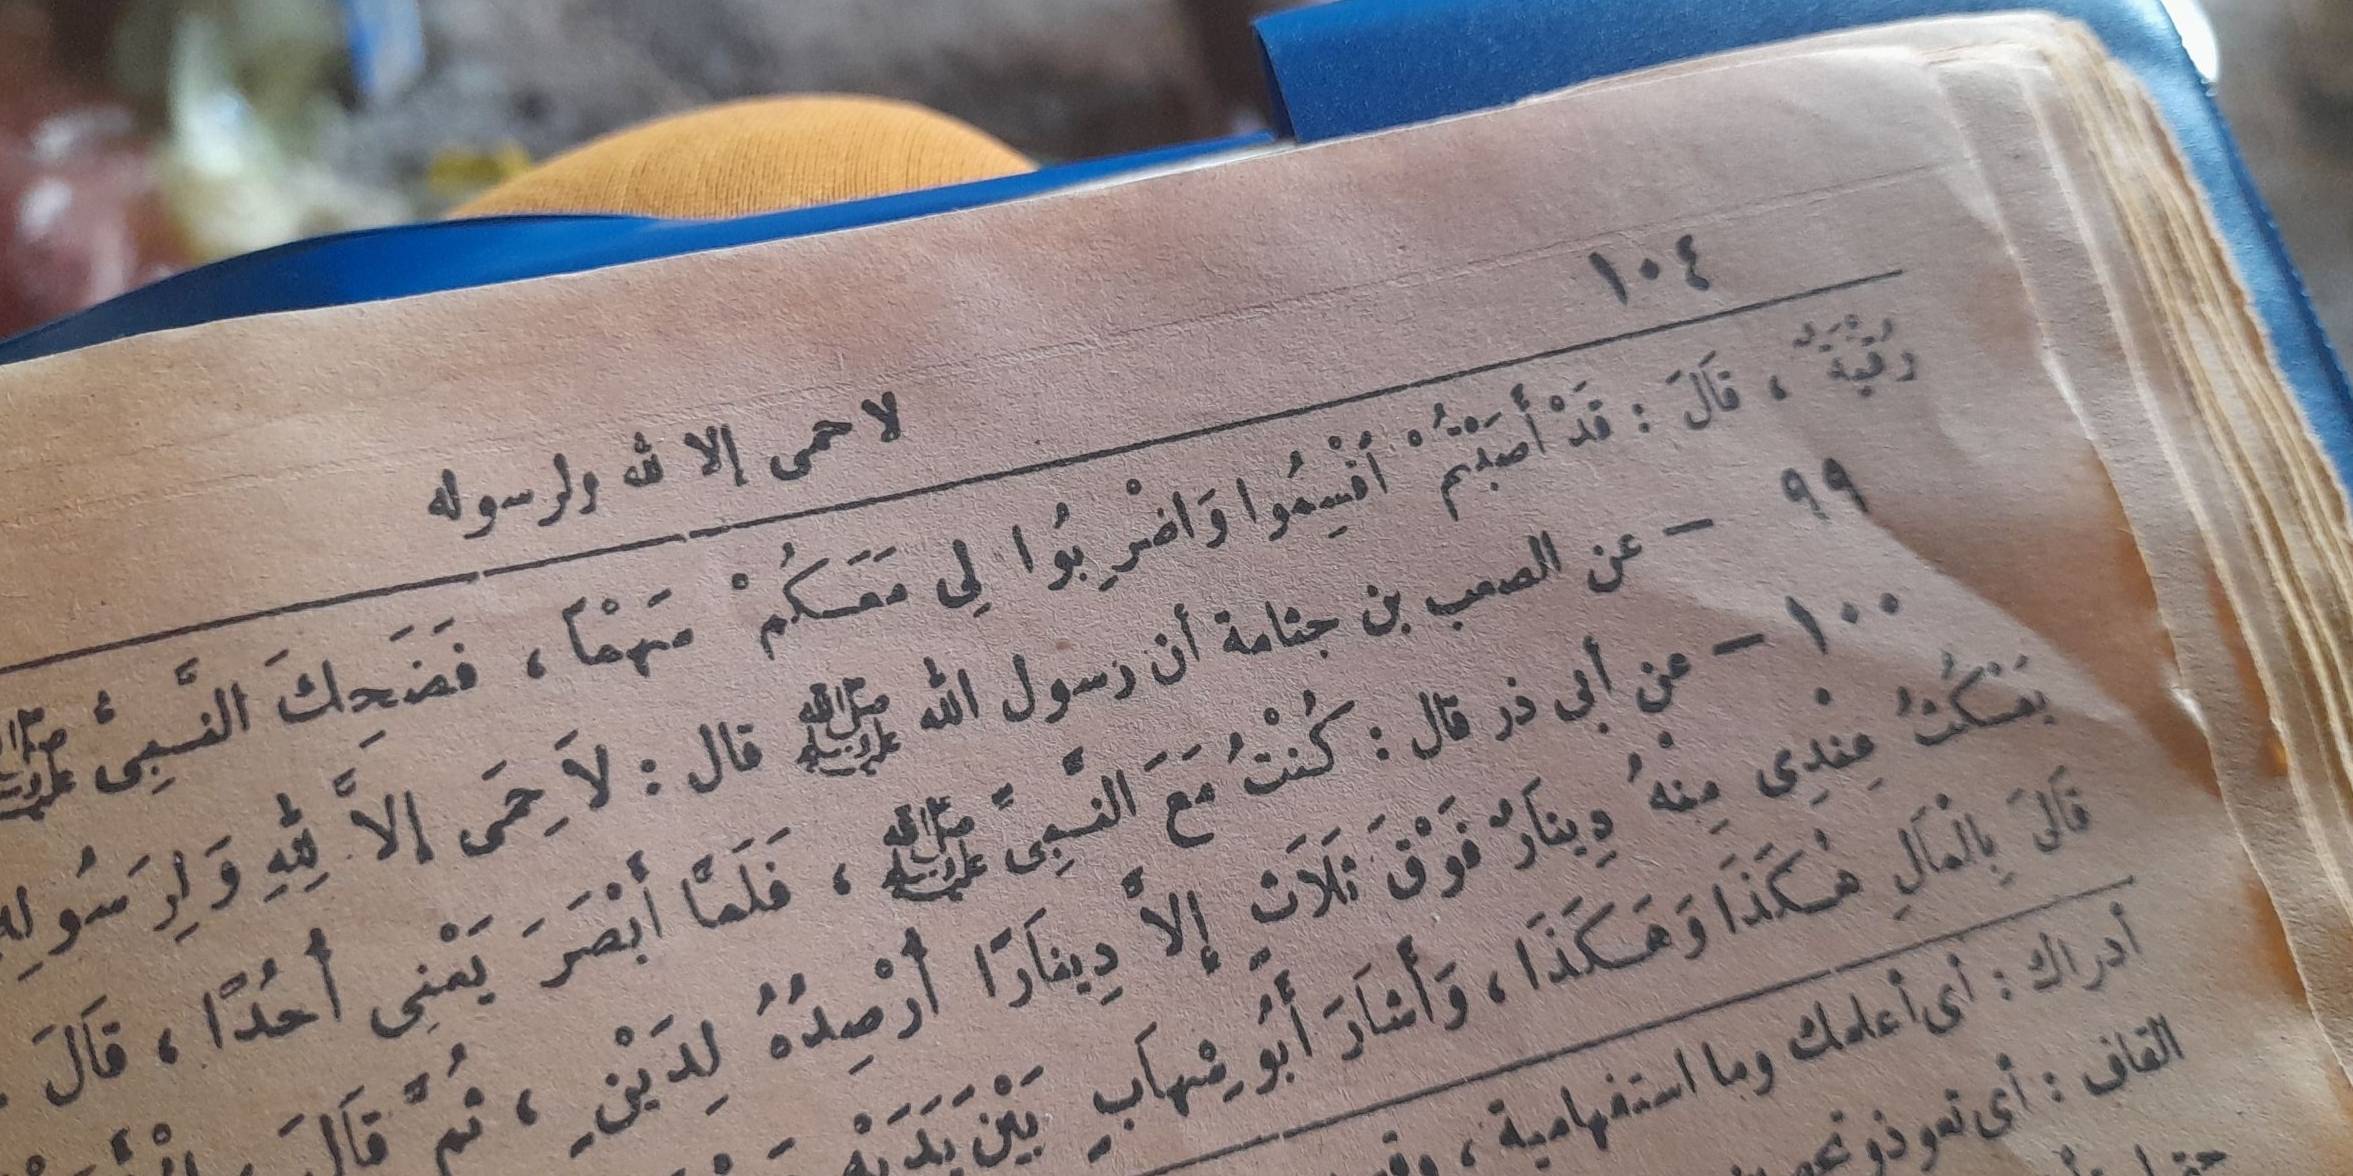 ١٠٤
لا حمى إلا لله ولرسوله
رُقْيَةٌ ، قَالَ : قَدْ أَصَبْتُمُ أَقْسِمُوا وَاضْرِبُوا لِي مَعَكُمْ سَهْمًا ، فَضَحِكَ النَّبِىُّ ﷺ
٩٩ – عن الصعب بن جثامة أن رسول الله ﷺ قال : لاَ حِمَى إلاَّ لِلهِ وَلِرَسُولِهِ
١٠٠ – عن أبى ذر قال : كُنْتُ مَعَ النَّبِىِّ ﷺ ، فَلَمَّا أَبْصَرَ يَعْنِى أُحُدًا ، قَالَ :
يَمْكُثُ عِنْدِى مِنْهُ دِينَارٌ فَوْقَ ثَلَاثٍ إلاَّ دِينَارًا أُرْصِدُهُ لِدَيْنٍ ، ثُمَّ قَالَ
قَالَ بِالْمَالِ هٰكَذَا وَهَكَذَا ، وَأَشَارَ أَبُو شِهَابٍ بَيْنَ يَدَيْهِ
أدراك : أى أعلمك وما استفهامية ،
القاف : أى تعوذونحو